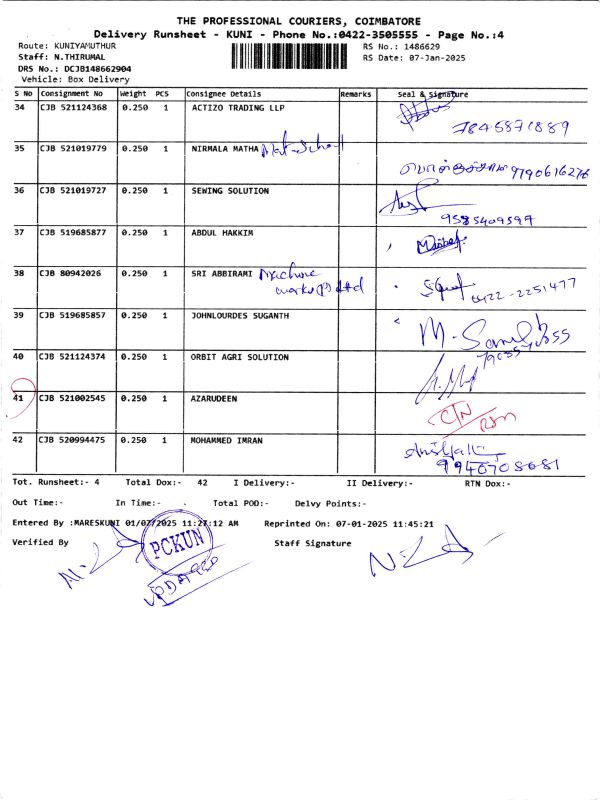 THE PROFESSIONAL COURIERS, COIMBATORE
Delivery Runsheet - KUNI - Phone No.:0422-3505555 - Page No.:4
Route: KUNIYAMUTHUR RS No.: 1486629
Staff: N.THIRUMAL RS Date: 07-Jan-2025
DRS No.: DCJB148662904
Vehicle: Box Delivery
S No Consignment No Weight PCS Consignee Details Remarks Seal & Signature
34 CJB 521124368 0.250 1 ACTIZO TRADING LLP
7845871889
35 CJB 521019779 0.250 1 NIRMALA MATHA Mat-School
9790616276
36 CJB 521019727 0.250 1 SEWING SOLUTION
9585409597
37 CJB 519685877 0.250 1 ABDUL HAKKIM
38 CJB 80942026 0.250 1 SRI ABBIRAMI Machine
works (P) Ltd 0422-2251477
39 CJB 519685857 0.250 1 JOHNLOURDES SUGANTH
40 CJB 521124374 0.250 1 ORBIT AGRI SOLUTION
41 CJB 521002545 0.250 1 AZARUDEEN
42 CJB 520994475 0.250 1 MOHAMMED IMRAN
Tot. Runsheet:- 4 Total Dox:- 42 I Delivery:- II Delivery:- RTN Dox:-
Out Time:- In Time:- Total POD:- Delvy Points:-
Entered By :MARESKUNI 01/07/2025 11:27:12 AM Reprinted On: 07-01-2025 11:45:21
Verified By PCKUN Staff Signature
UPDATED